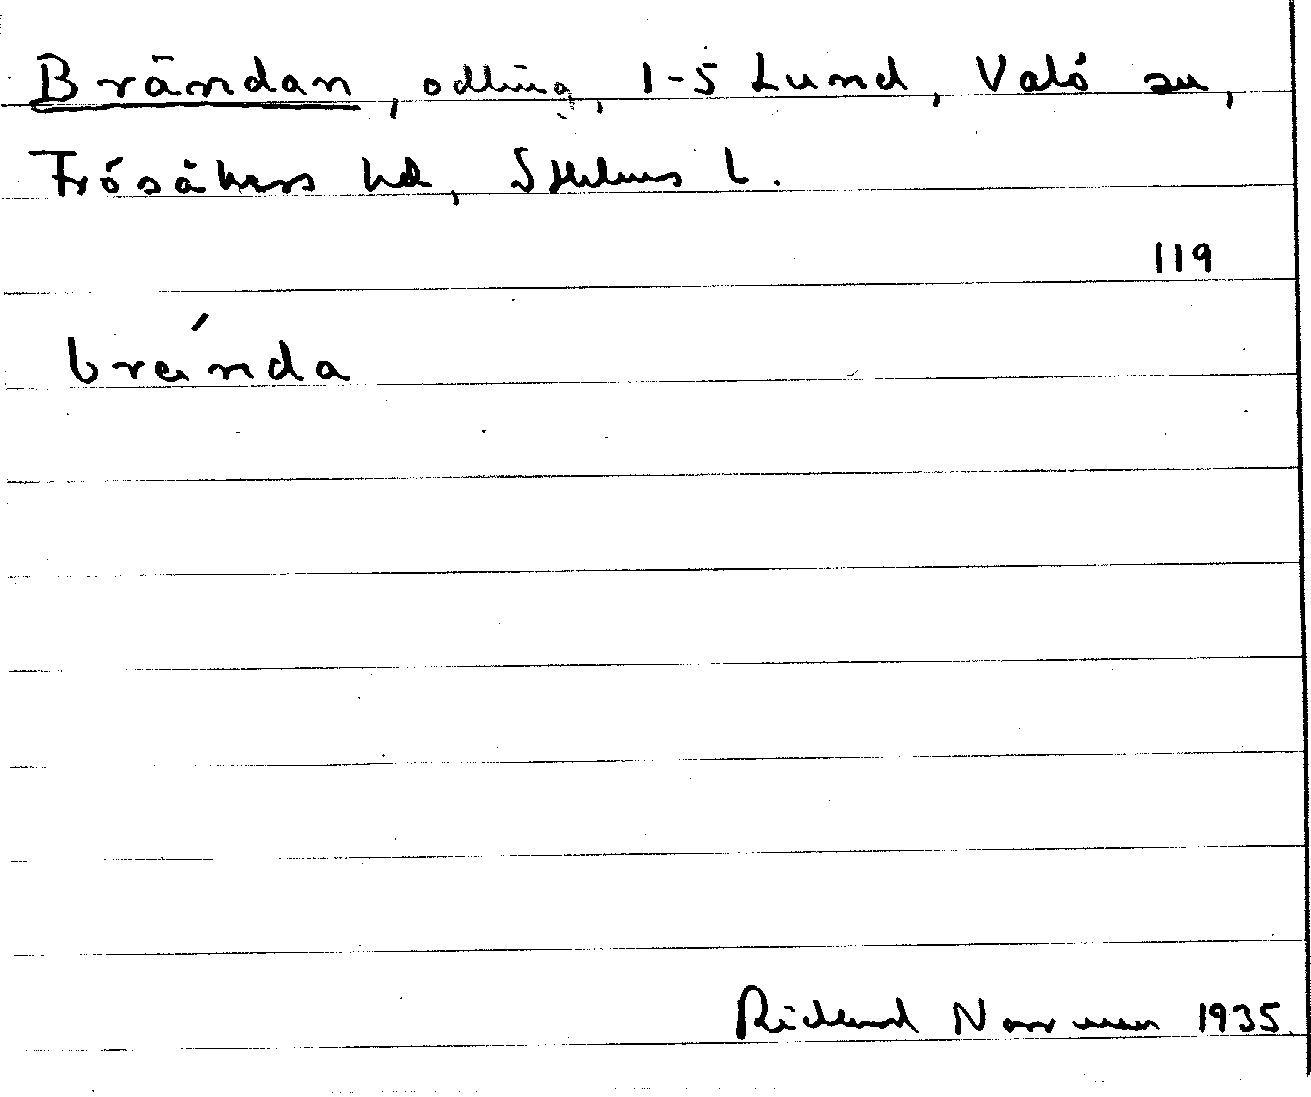 Brändan, odling, 1-5 Lund, Valö sn,
Frösåkers hd, Sthlms l.
119
brända
Rickard Norrman 1935.